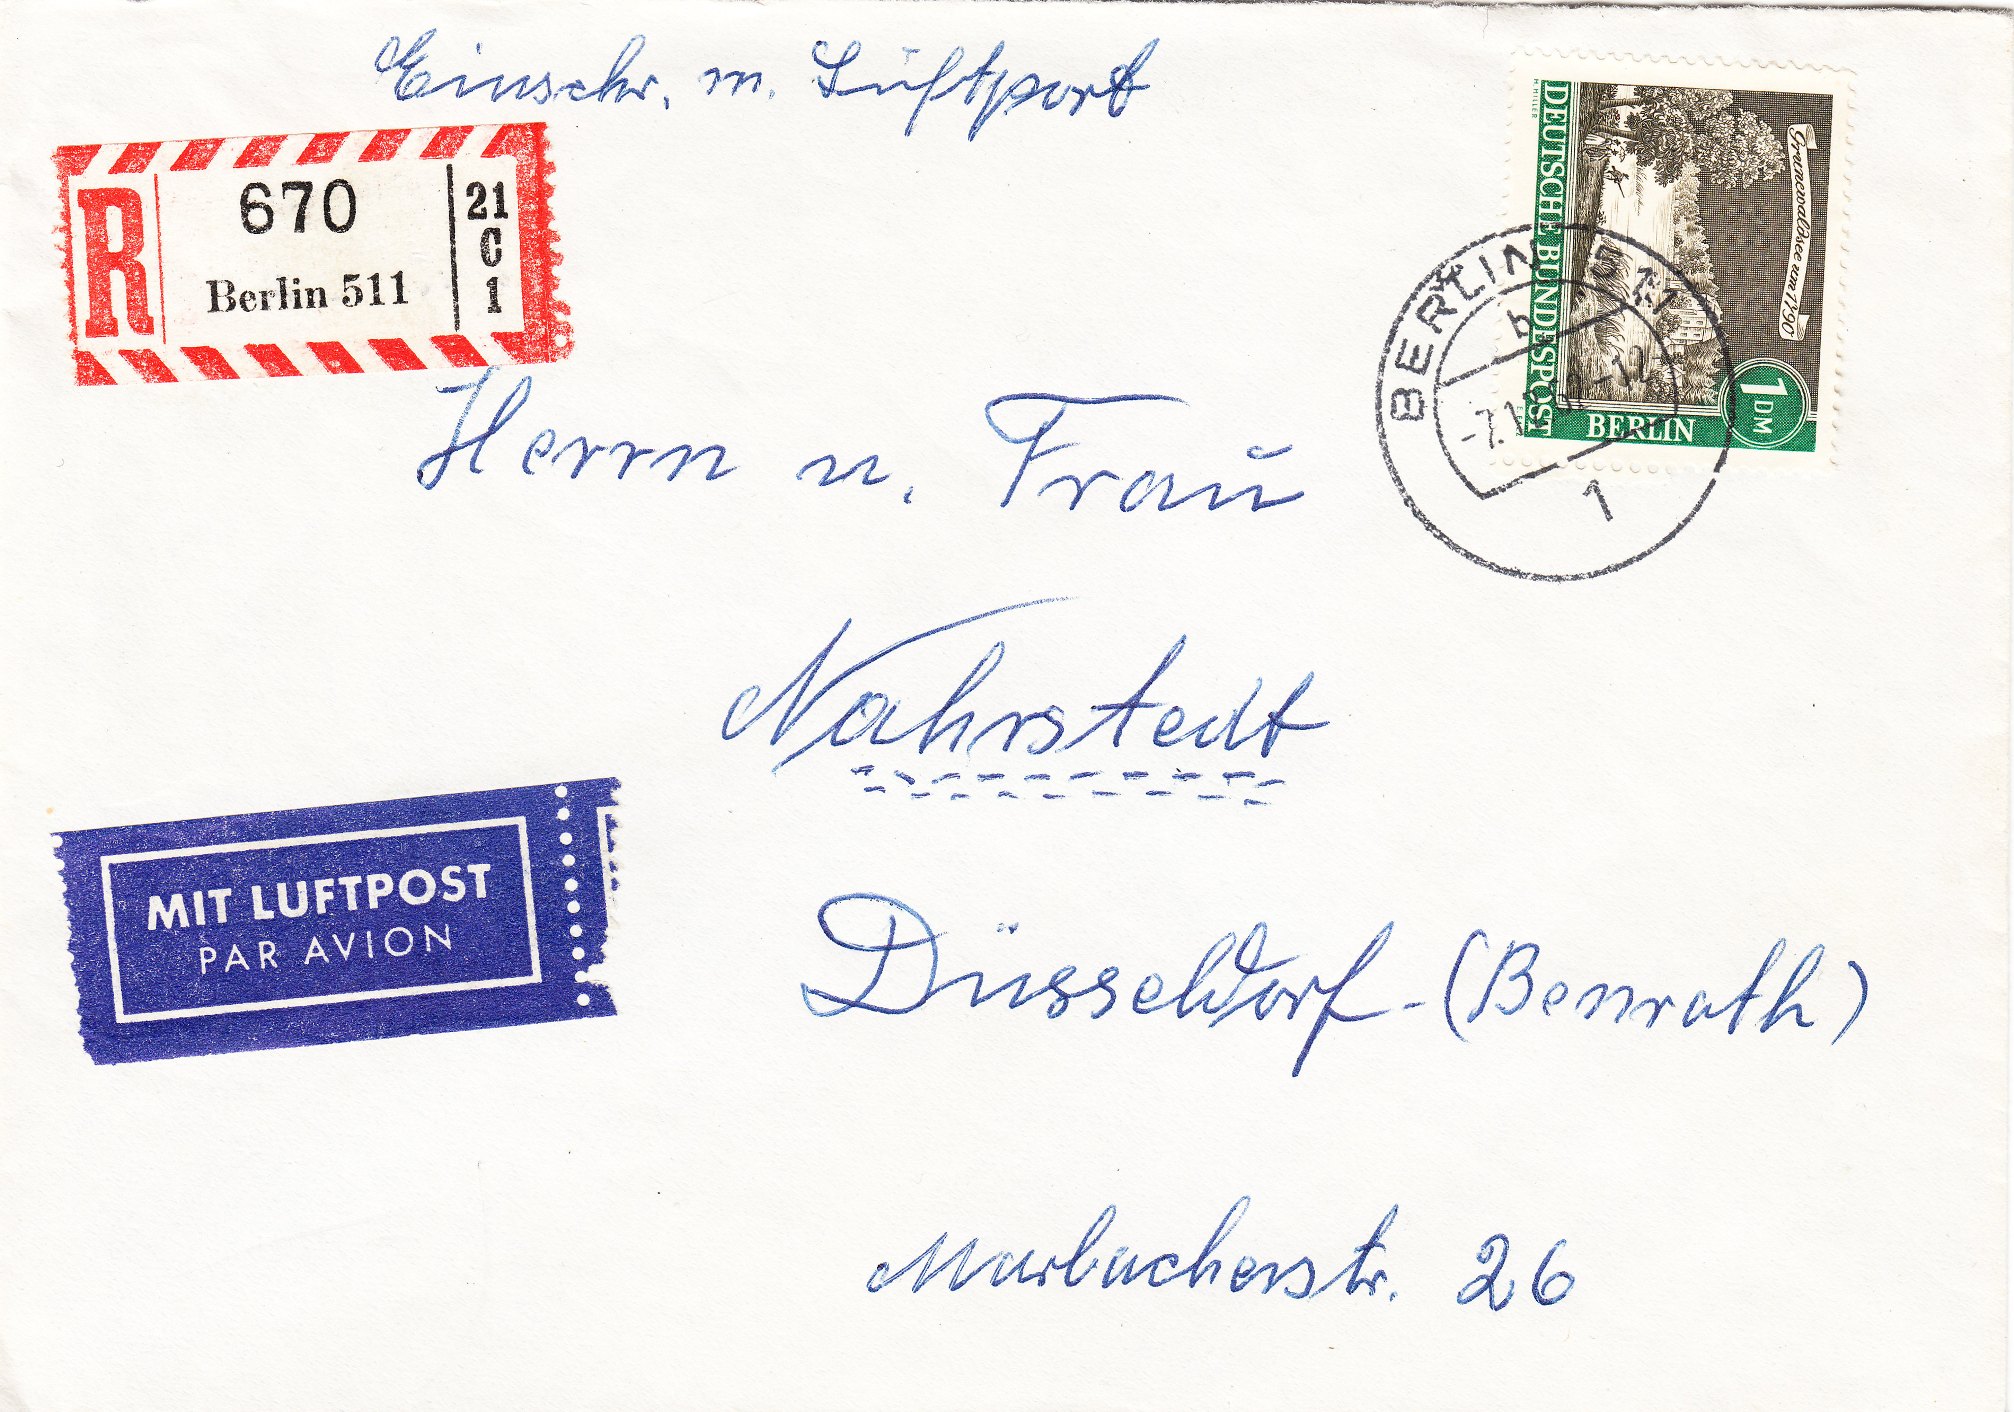 Einschr. m. Luftpost
R
670
Berlin 511
21
C
1
H. MILLER
DEUTSCHE BUNDESPOST
Grunewaldsee um 1790
BERLIN
1 DM
BERLIN 511
b
1
Herrn u. Frau
Nahrstedt
MIT LUFTPOST
PAR AVION
Düsseldorf-(Benrath)
Marbacherstr. 26